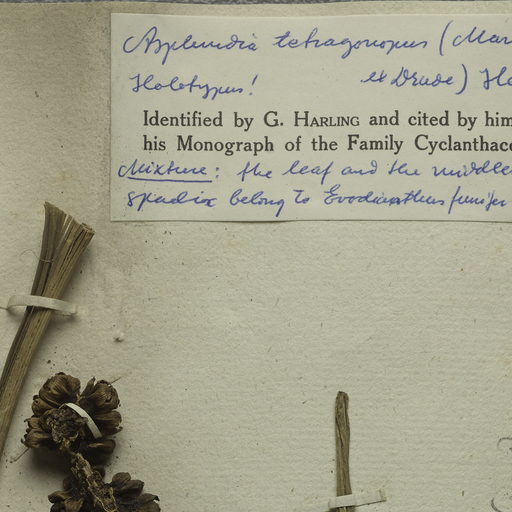 Asplundia tetragonopus (Mar
Holotypus! ex Drude) Ha
Identified by G. HARLING and cited by him
his Monograph of the Family Cyclanthace
Mixture: the leaf and the middle
spadix belong to Evodianthus funifer